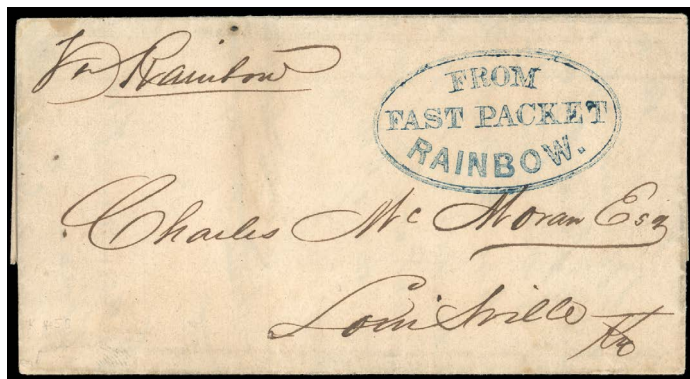 Pr Rainbow
FROM
FAST PACKET
RAINBOW.
Charles Mc Moran Esq
Louisville
Ky